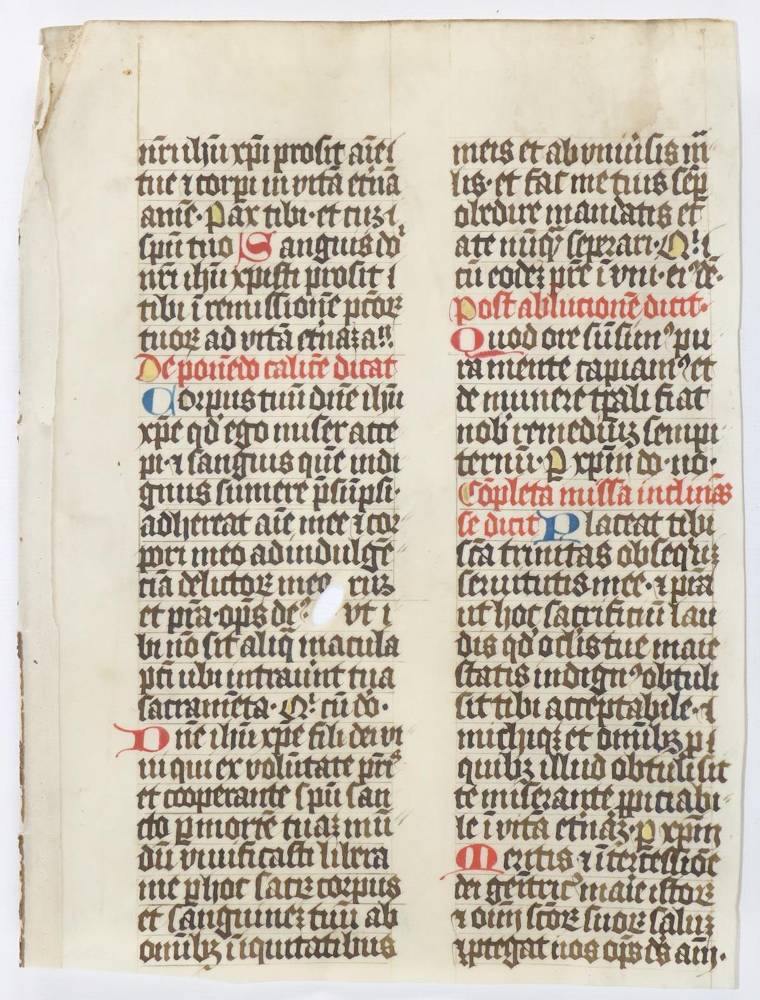 nr̄i ihū xp̄i prosit aīe i
tue ⁊ corpi̅ in vitā et̄nā
amē· Pax tibi· et cuz i
spū tuo Sanguis do'
nr̄i ihū xpisti prosit i
tibi ī remissionē pc̄toꝝ
tuoꝝ ad vitā et̄naz a
De ponēdo calicē dicat
Corpus tuū dn̄e ihū
xp̄e qd' ego miser acce
pi· ⁊ sanguis quē indi
gnus sumere p̄sūpsi·
adhereat aīe mee ⁊ cor
pori meo ad indulgē
ciā delictoꝝ meo ruz
et pr̄a· op̄s de' vt i
bi nō sit aliq̄ macula
pc̄i ubi intraūint tua
sacramēta· Q' cū do·
Dn̄e ihū xp̄e fili dei vi
ui qui ex volūtate pr̄is
et cooperante spū san
cto ꝑ morte tuaz mū
dū viuificasti libera
me ꝑ hoc sacrꝫ corpus
et sanguinez tuū ab
omībꝫ iīquitatibus
meis et ab vniūsis m̄
lis· et fac me tuis sēp
obedire mandatis et
a te nūqꝫ seperari· Q' i
cū eodez pr̄e ī vni· ei' dē·
Post ablucionē dicit·
Quod ore sūsimꝰ pu
ra mente capiamꝰ et
de munere tp̄ali fiat
nob' remediūz sempi
ternū· P xp̄m do· no·
Cōpleta missa inclinās
se dicit Placeat tibi
sc̄a trinitas obsequiūz
seruitutis mee· ⁊ pr̄a
ut hoc sacrificiū lau
dis qd' oclis tue maie
statis indignꝰ obtuli
sit tibi acceptabile· i
michiqꝫ et omībꝫ p i
quibꝫ illud obtuli sit
te miserante ꝓpiciabi
le ī vitā et̄naz· P xp̄m
Meritis ⁊ īt̄cessiōe
dei genitric' maīe istoꝝ
⁊ oīm sc̄oꝝ suoꝝ saluꝫ
⁊ ꝓtegat nos op̄s ds̄ am̄·